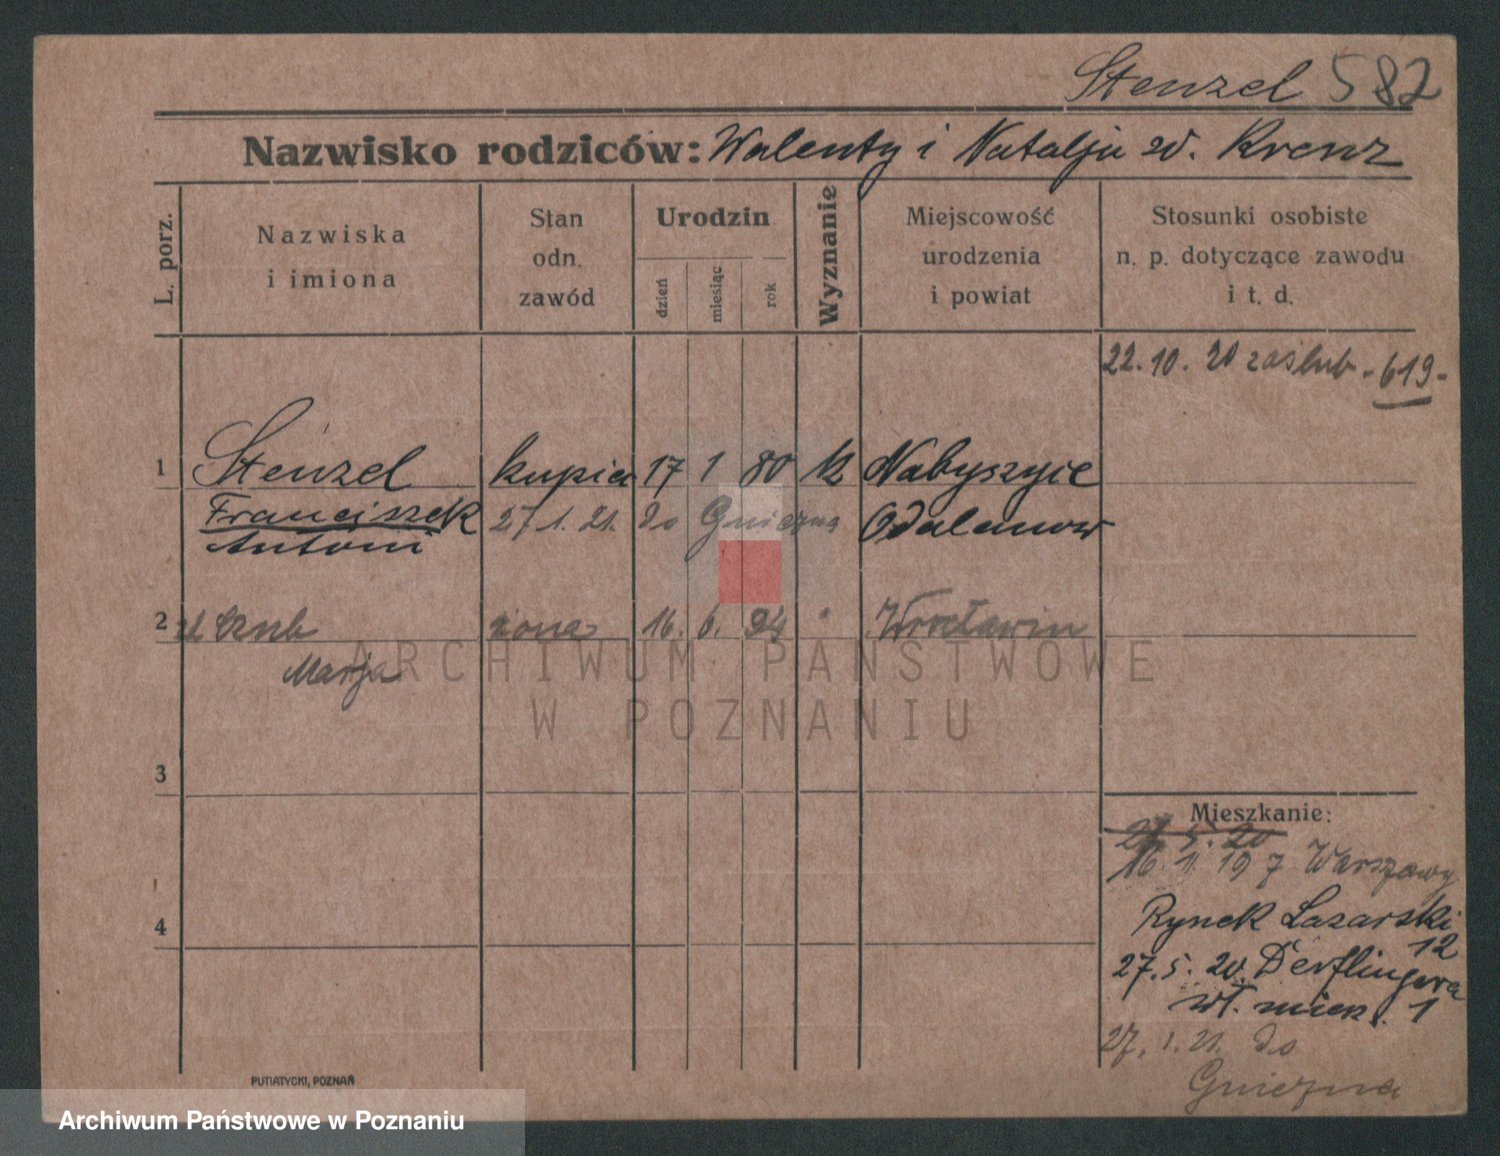 Stenzel 582
Nazwisko rodziców: Walenty i Natalja w. Krenz
L. porz.
Nazwiska
i imiona
Stan
odn.
zawód
Urodzin
dzień
miesiąc
rok
Wyznanie
Miejscowość
urodzenia
i powiat
Stosunki osobiste
n. p. dotyczące zawodu
i t. d.
22. 10. 20 zaślub - 619 -
1 Stenzel kupiec 17 1 80 k Nabyszyce
Franciszek 27. 1. 21. do Gniezna Odalanow
Antoni
2 żona 16. 6. 94 " Wrocławin
Marja
ARCHIWUM PAŃSTWOWE
W POZNANIU
3
Mieszkanie:
27. 5. 20
16. 1. 19 z Warszawy
4
Rynek Lazarski
12
27. 5. 20. Derflingera
wł. miesz. 1
27. 1. 21. do
Gniezna
PUTIATYCKI, POZNAŃ
Archiwum Państwowe w Poznaniu